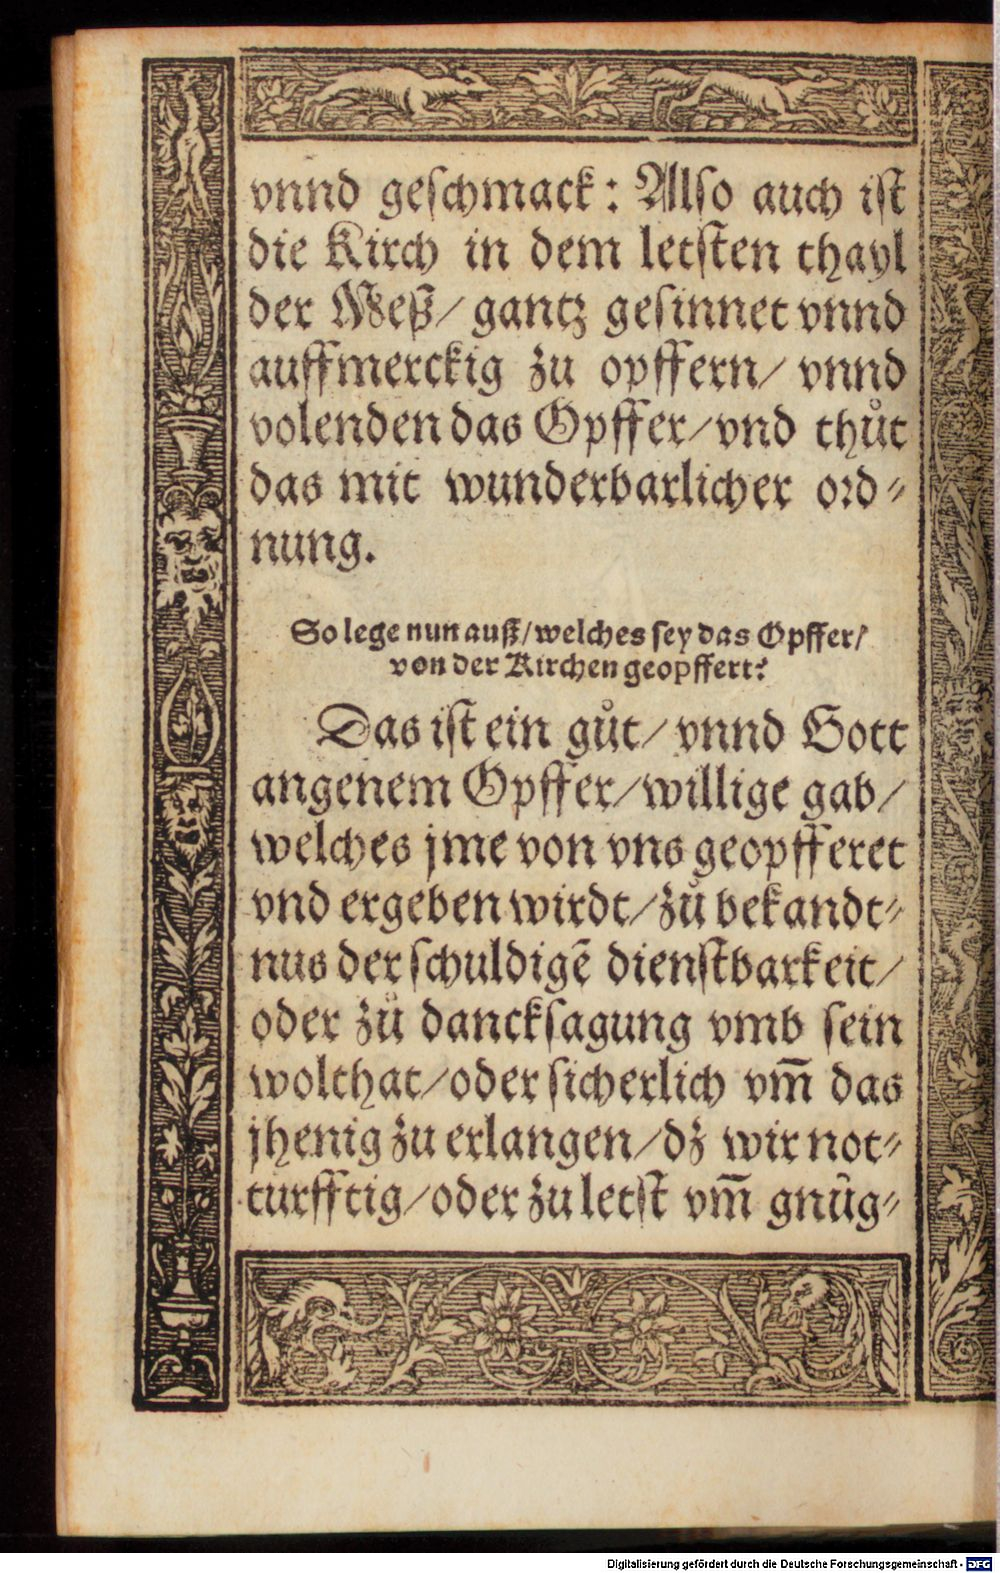 vnnd geschmack: Also auch ist
die Kirch in dem letsten thayl
der Meß/ gantz gesinnet vnnd
auffmerckig zu opffern/ vnnd
volenden das Opffer/vnd thůt
das mit wunderbarlicher ord-
nung.
So lege nun auß/welches sey das Opffer/
von der Kirchen geopffert?
Das ist ein gůt/ vnnd Gott
angenem Opffer/willige gab/
welches jme von vns geopfferet
vnd ergeben wirdt/zů bekandt-
nus der schuldigē dienstbarkeit/
oder zů dancksagung vmb sein
wolthat/oder sicherlich vm̄ das
jhenig zu erlangen/dz wir not-
turfftig/oder zu letst vm̄ gnůg-
Digitalisierung gefördert durch die Deutsche Forschungsgemeinschaft - DFG